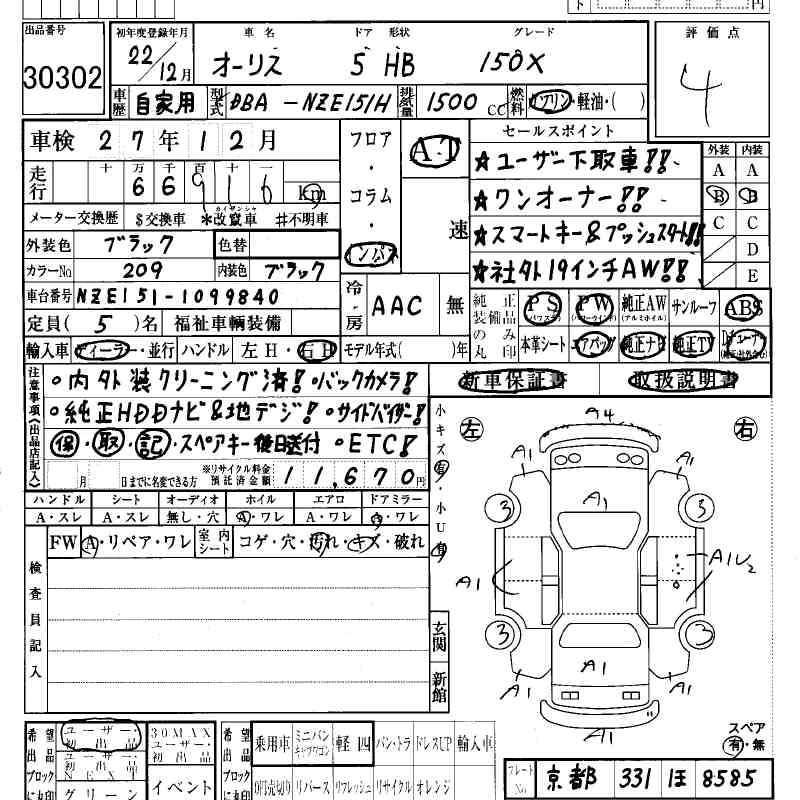 出品番号 初年度登録年月 車名 ドア 形状 グレード 評価点
30302 22/12月 オーリス 5 HB 150X 4
車歴 自家用 型式 DBA-NZE151H 排気量 1500cc 燃料 ガソリン・軽油・( )
車検 27年12月 フロア・コラム・インパネ AT 速 セールスポイント 外装 内装
走行 十万千百十一 66916 Km ★ユーザー下取車!! A A
★ワンオーナー!! B B
メーター交換歴 $交換車 *改竄車 #不明車 ★スマートキー&プッシュスタート!! C C
外装色 ブラック 色替 ★社外19インチAW!! D
カラーNo 209 内装色 ブラック E
車台番号 NZE151-1099840 冷房 AAC 無 純正装備品のみ丸印 PS PW 純正AW サンルーフ ABS
(パワステ) (パワーウインド) (アルミホイル)
定員( 5 )名 福祉車輌装備 本革シート エアバッグ 純正ナビ 純正TV
輸入車 ディーラー・並行 ハンドル 左H・右H モデル年式( )年
注意事項(出品店記入) ・内外装クリーニング済!・バックカメラ! 新車保証書 取扱説明書
・純正HDDナビ&地デジ!・サイドバイザー!
保・取・記・スペアキー後日送付・ETC!
月 日までに名変できる方 ※リサイクル料金預託済金額 11,670円
小キズ有・小U有
左 右
ハンドル シート オーディオ ホイル エアロ ドアミラー
A・スレ A・スレ 無し・穴 A・ワレ A・ワレ A・ワレ
FW A・リペア・ワレ 室内シート コゲ・穴・汚れ・キズ・破れ
検査員記入
A4
A1 A1
3 A1 3
A1 A1U2
3 3
A1 A1 A1
A1
玄関
新館
スペア
有・無
希望出品ブロックに丸印 ユーザー・初出品 30MAX ユーザー・初出品 希望出品ブロックに丸印 乗用車 ミニバン 軽四 バン・トラ ドレスUP 輸入車
NEXT
グリーン イベント 0円売切り リバース リフレッシュ リサイクル オレンジ
プレートNo 京都 331 ほ 8585